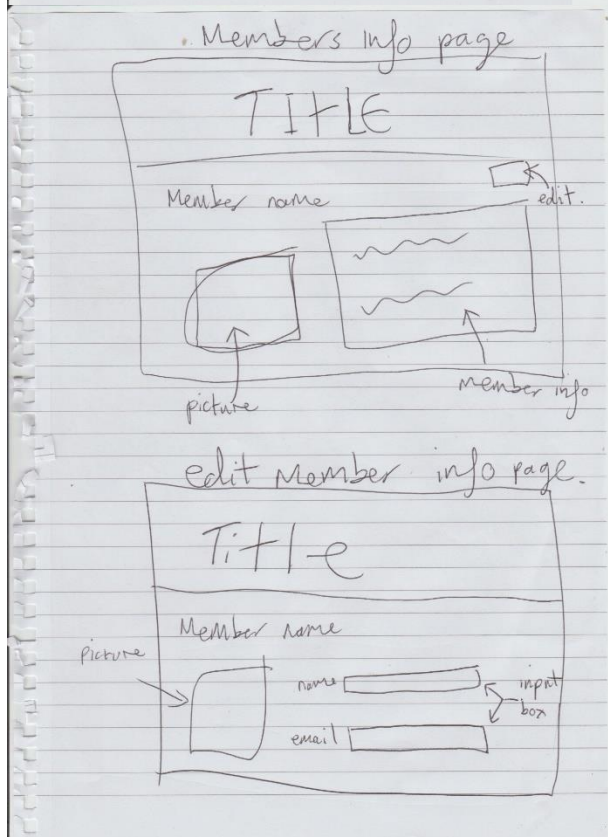 Members info page
TITLE
edit.
Member name
picture
member info
edit Member info page.
Title
Member name
picture
name
input
box
email